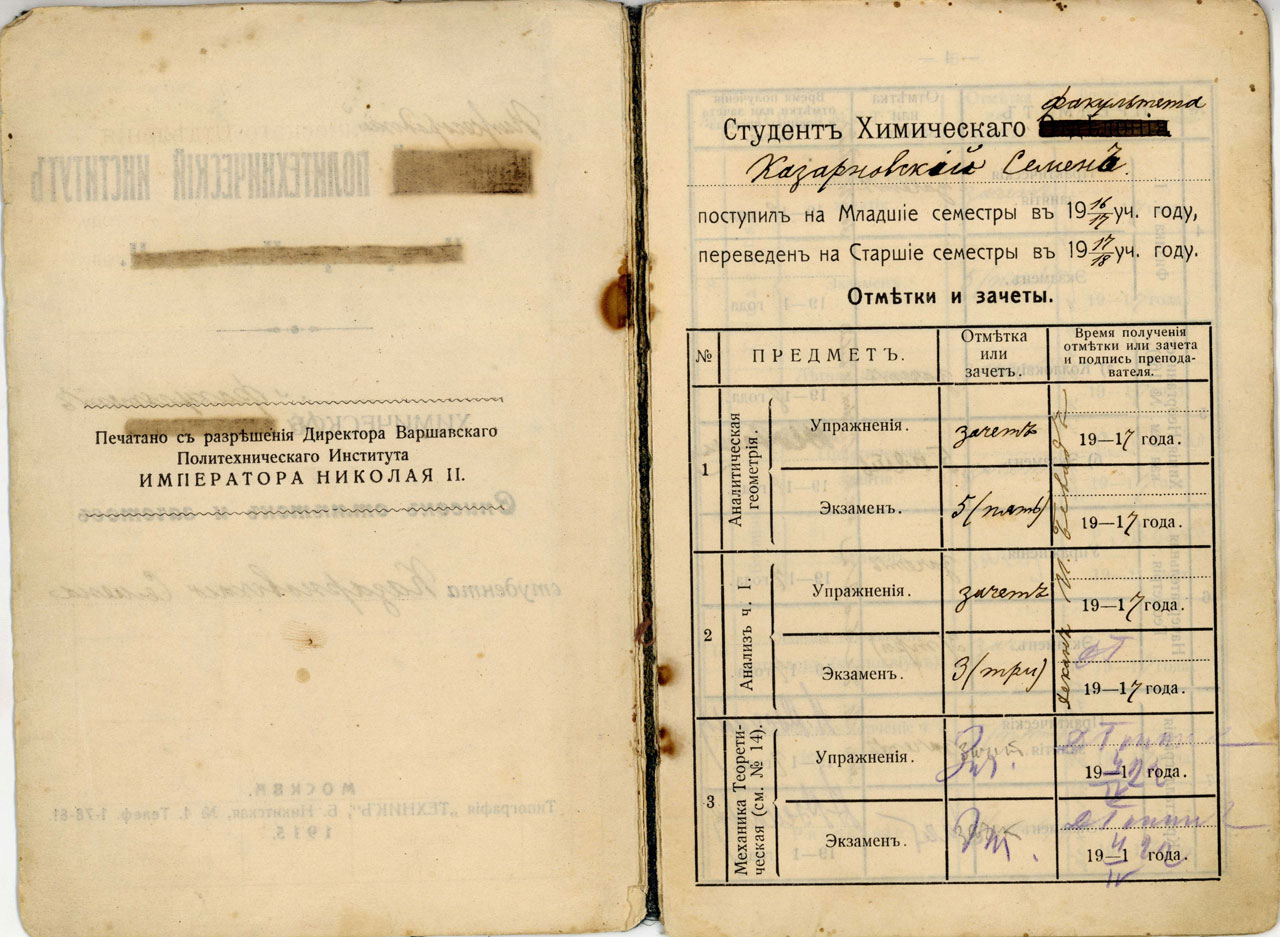 Печатано съ разрѣшенія Директора Варшавскаго
Политехническаго Института
ИМПЕРАТОРА НИКОЛАЯ II.
факультета
Студентъ Химическаго
Казарновскій Семенъ.
поступилъ на Младшіе семестры въ 19 16/17 уч. году,
переведенъ на Старшіе семестры въ 19 17/18 уч. году.
Отмѣтки и зачеты.
№ ПРЕДМЕТЪ. Отмѣтка или зачетъ. Время получения отмѣтки или зачета и подпись препода-вателя.
1 Аналитическая геометрія.
Упражненія. зачетъ 19—17 года.
Экзаменъ. 5 (пять) 19—17 года.
2 Анализъ ч. I.
Упражненія. зачетъ 19—17 года.
Экзаменъ. 3 (три) 19—17 года.
деканъ
3 Механика Теорети-ческая (см. № 14).
Упражненія. 19—1 года.
Экзаменъ. 19—1 года.